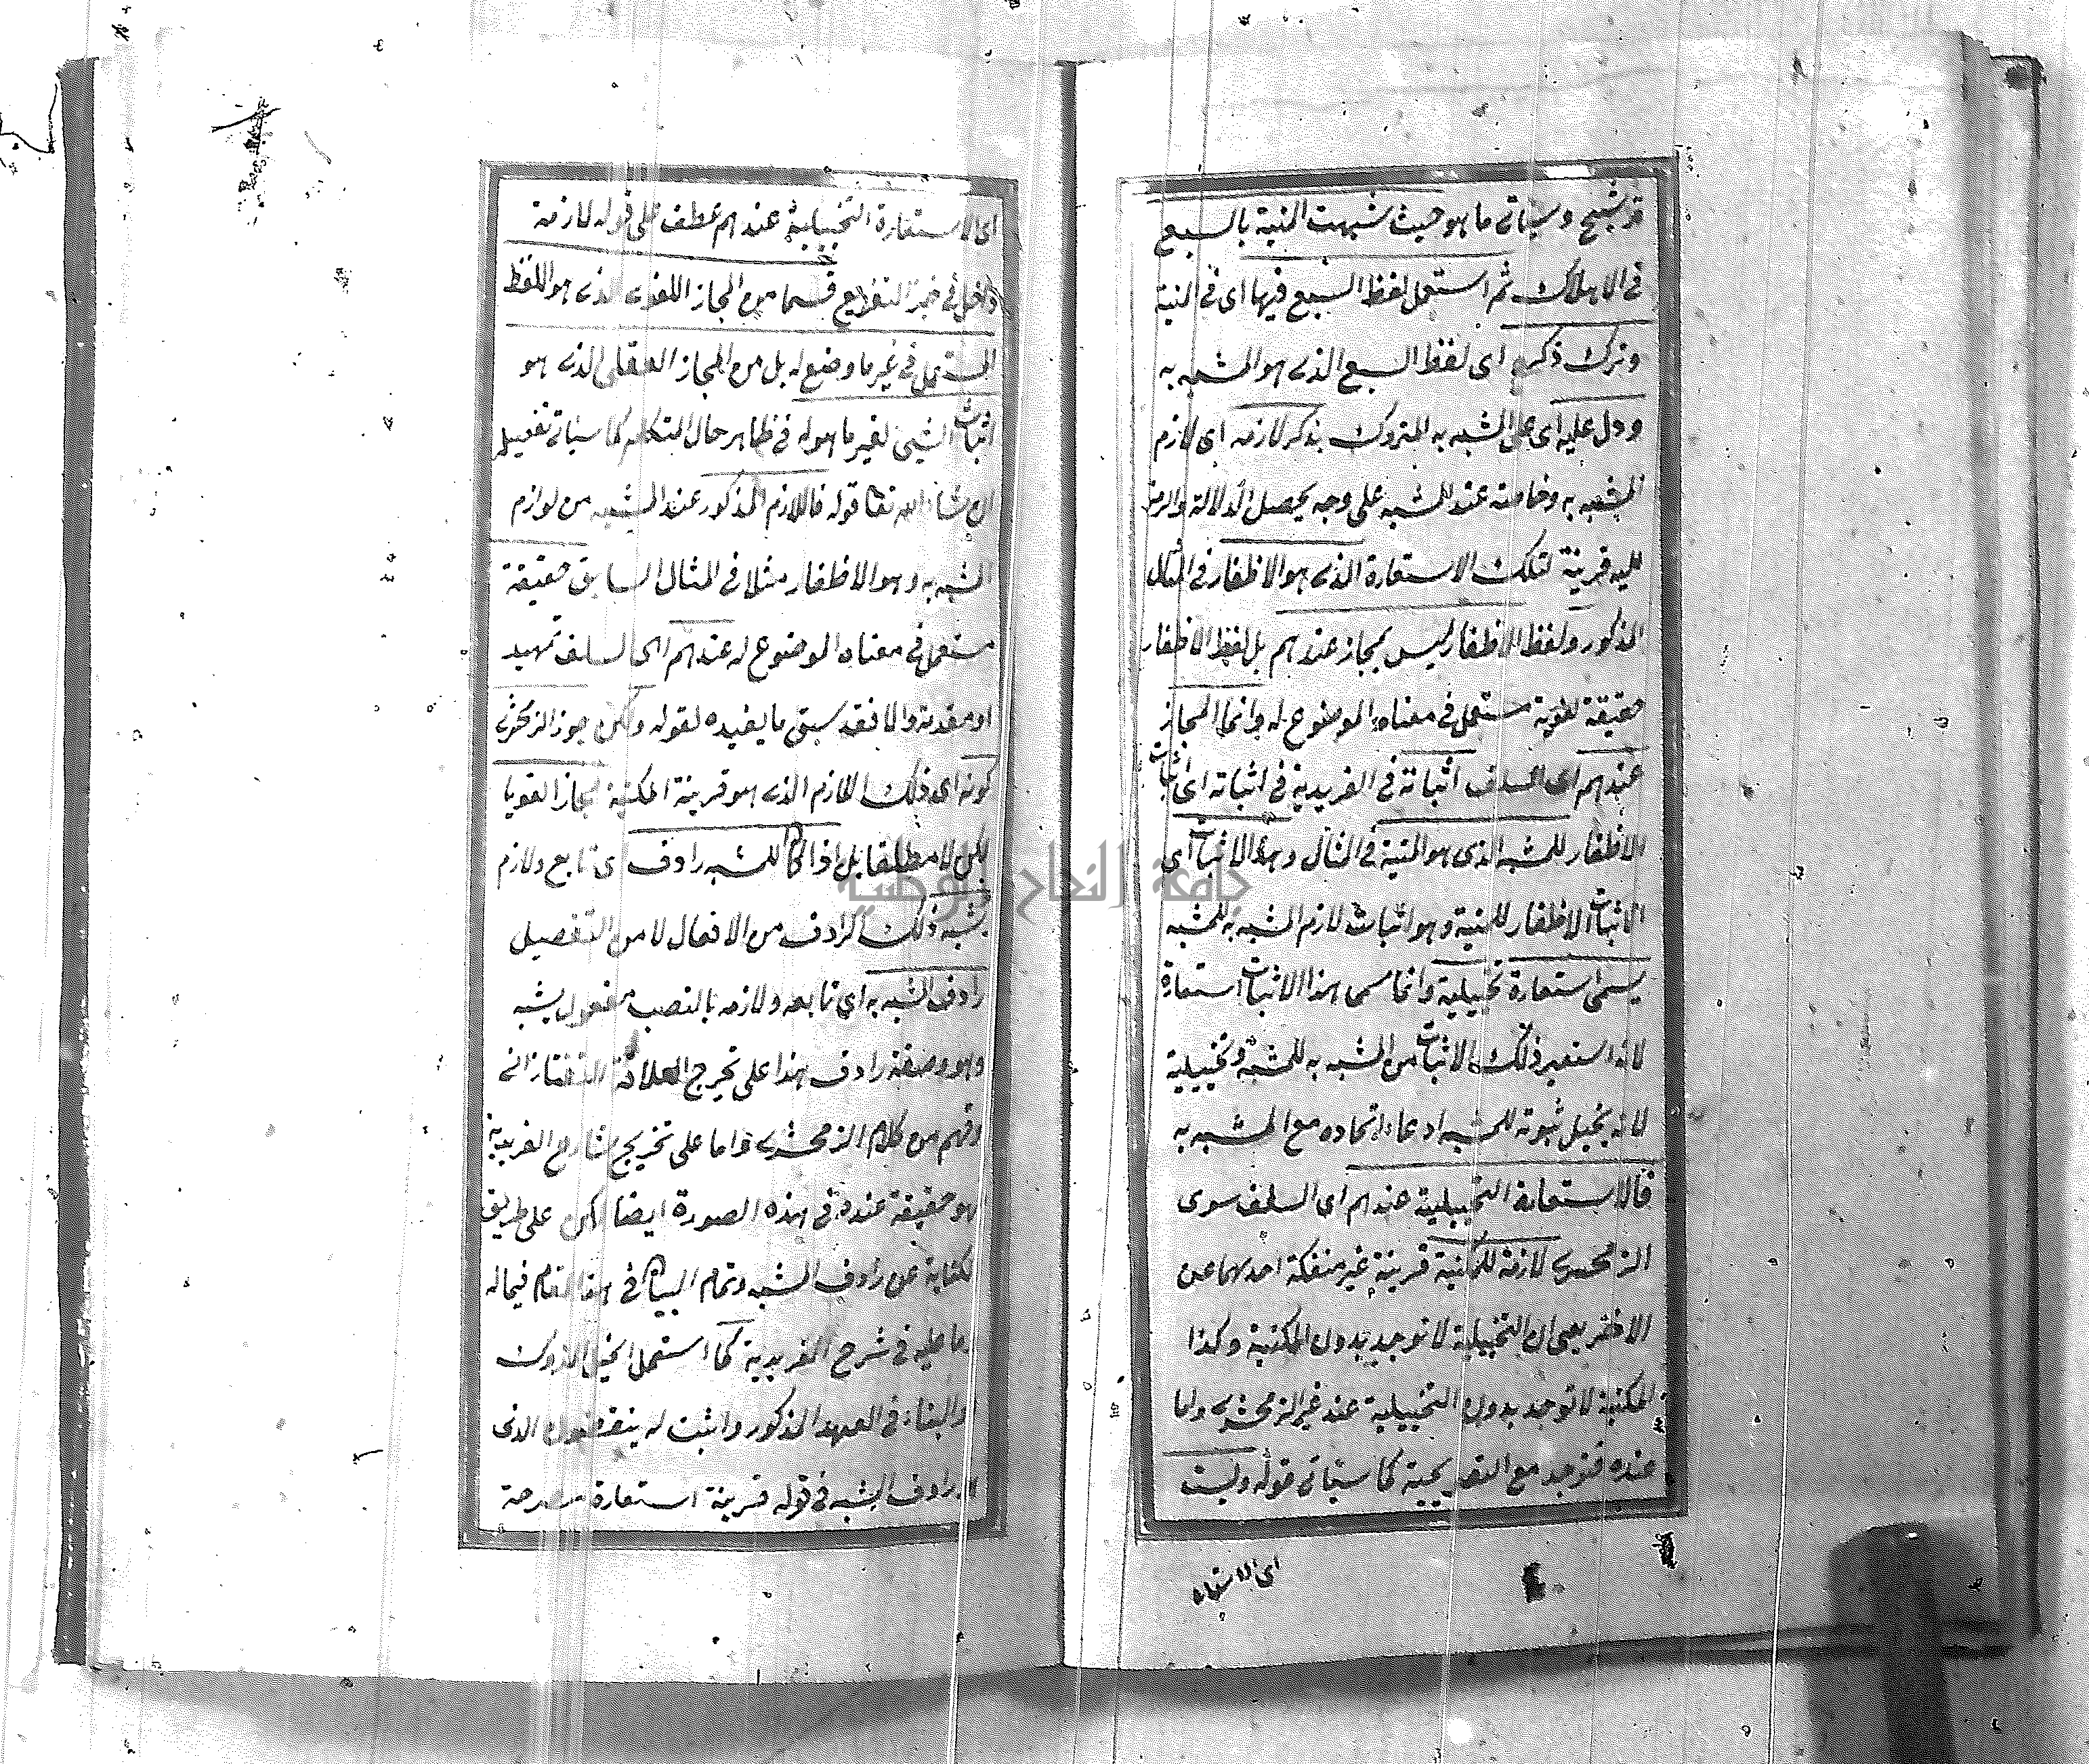 ترشيح وسيأتى ما هو حيث شبهت المنية بالسبع
فى الاهلاك ثم استعمل لفظ السبع فيها اى فى المنية
وترك ذكره اى لفظ السبع الذى هو المشبه به
ودل عليه اى على المشبه به المتروك بذكر لازمه اى لازم
المشبه به وخاصته عند المشبه على وجه يحصل الدلالة والرمز
اليه قرينة لتلك الاستعارة الذى هو الاظفار فى المثال
المذكور ولفظ الاظفار ليس بمجاز عندهم بل لفظ الاظفار
حقيقة لغوية مستعمل فى معناه الموضوع له وانما المجاز
عندهم اى السلف اثباته فى الفريدية فى اثباته اى اثبات
الاظفار للمشبه الذى هو المنية فى المثال وهذا الاثبات اى
الاثبات الاظفار للمنية وهو اثبات لازم المشبه به للمشبه
يسمى استعارة تخييلية وانما سمى هذا الاثبات استعارة
لانه استعير ذلك الاثبات من المشبه به للمشبه وتخييلية
لانه يخيل ثبوته للمشبه ادعاء اتحاده مع المشبه به
فالاستعارة التخييلية عندهم اى السلف سوى
الزمحشرى لازمة للمكنية قرينة غير منفكة احديهما عن
الاخر يعنى ان التخييلية لا توجد بدون المكنية وكذا
المكنية لا توجد بدون التخييلية عند غير الزمحشرى واما
عنده فتوجد مع التصريحية كما سيأتى قوله وليست
اى الاستعارة
اى الاستعارة التخييلية عندهم عطف على قوله لازمة
داخل فى حيز التفريع قسما من المجاز اللغوى الذى هو اللفظ
المستعمل فى غير ما وضع له بل من المجاز العقلى الذى هو
اثبات الشيئ لغير ما هو له فى ظاهر حال المتكلم كما سيأتى تفصيله
ان شاء الله تعا قوله فاللازم المذكور عند المشبه من لوازم
المشبه به وهو الاظفار مثلا فى المثال السابق حقيقة
مستعمل فى معناه الموضوع له عندهم اى السلف تمهيد
او مقدمة والا فقد سبق ما يفيده لقوله ولكن جوز الزمحشرى
كونه اى ذلك اللازم الذى هو قرينة المكنية مجازا لغويا
لكن لا مطلقا بل اذا كان للمشبه رادف اى تابع ولازم
يشبه ذلك الرادف من الافعال لا من التفصيل
رادف المشبه به اى تابعه ولازمه بالنصب مفعول يشبه
وهو وصفة رادف هذا على تخرج العلامة التفتازانى
وفهم من كلام الزمحشرى واما على تخريج شارح الفريدية
فهو حقيقة عنده فى هذه الصورة ايضا لكن على طريق
الكناية عن رادف المشبه وتمام البيان فى هذا المقام فيما له
وما عليه فى شرح الفريدية كما استعمل الحبل المتروك
والبناء فى العهد المذكور واثبت له ينقضون الذى
رادف المشبه فى قوله قرينة استعارة مصرحة
جامعة النجاح الوطنية